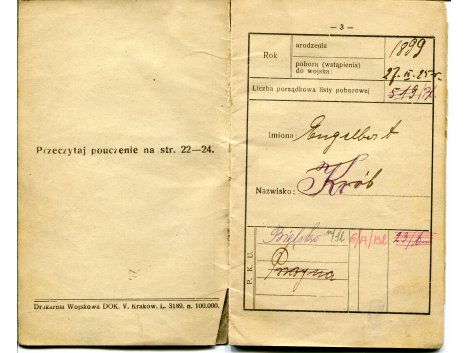 Przeczytaj pouczenie na str. 22—24.
Drukarnia Wojskowa DOK. V. Kraków. L. 3189. n. 100.000.
— 3 —
Rok
urodzenia
1899
poboru (wstąpienia)
do wojska:
27. IX. 25 r.
Liczba porządkowa listy poborowej
Imiona:
Engelbert
Nazwisko:
Król
P. K. U.
Bielsko